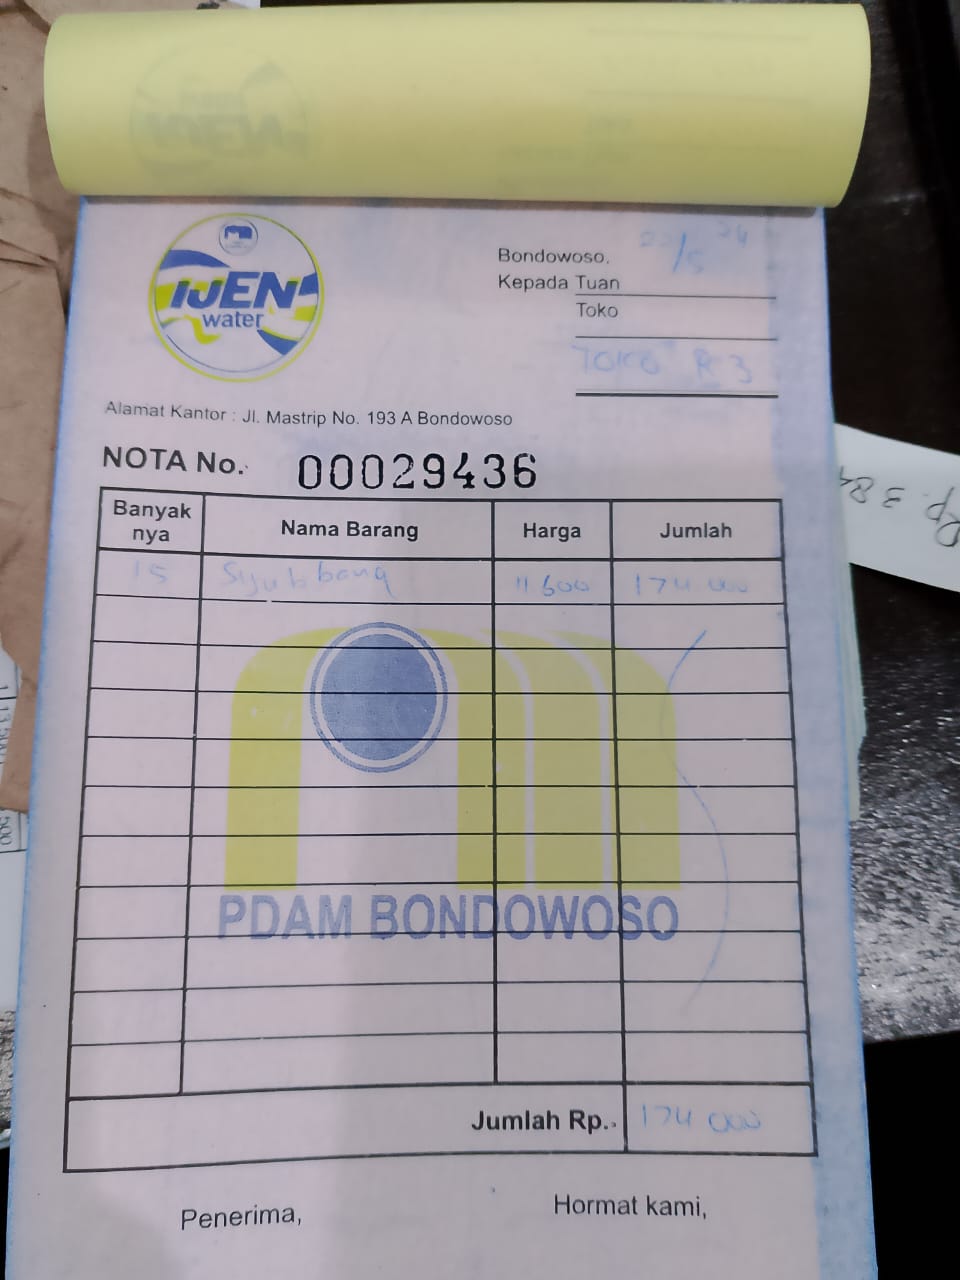 IJEN
water
Bondowoso, /5 24
Kepada Tuan
Toko
TOKO R 3
Alamat Kantor : Jl. Mastrip No. 193 A Bondowoso
NOTA No. 00029436
Banyak nya Nama Barang Harga Jumlah
15 11.600 174.000
PDAM BONDOWOSO
Jumlah Rp. 174 000
Penerima, Hormat kami,
Rp. 384